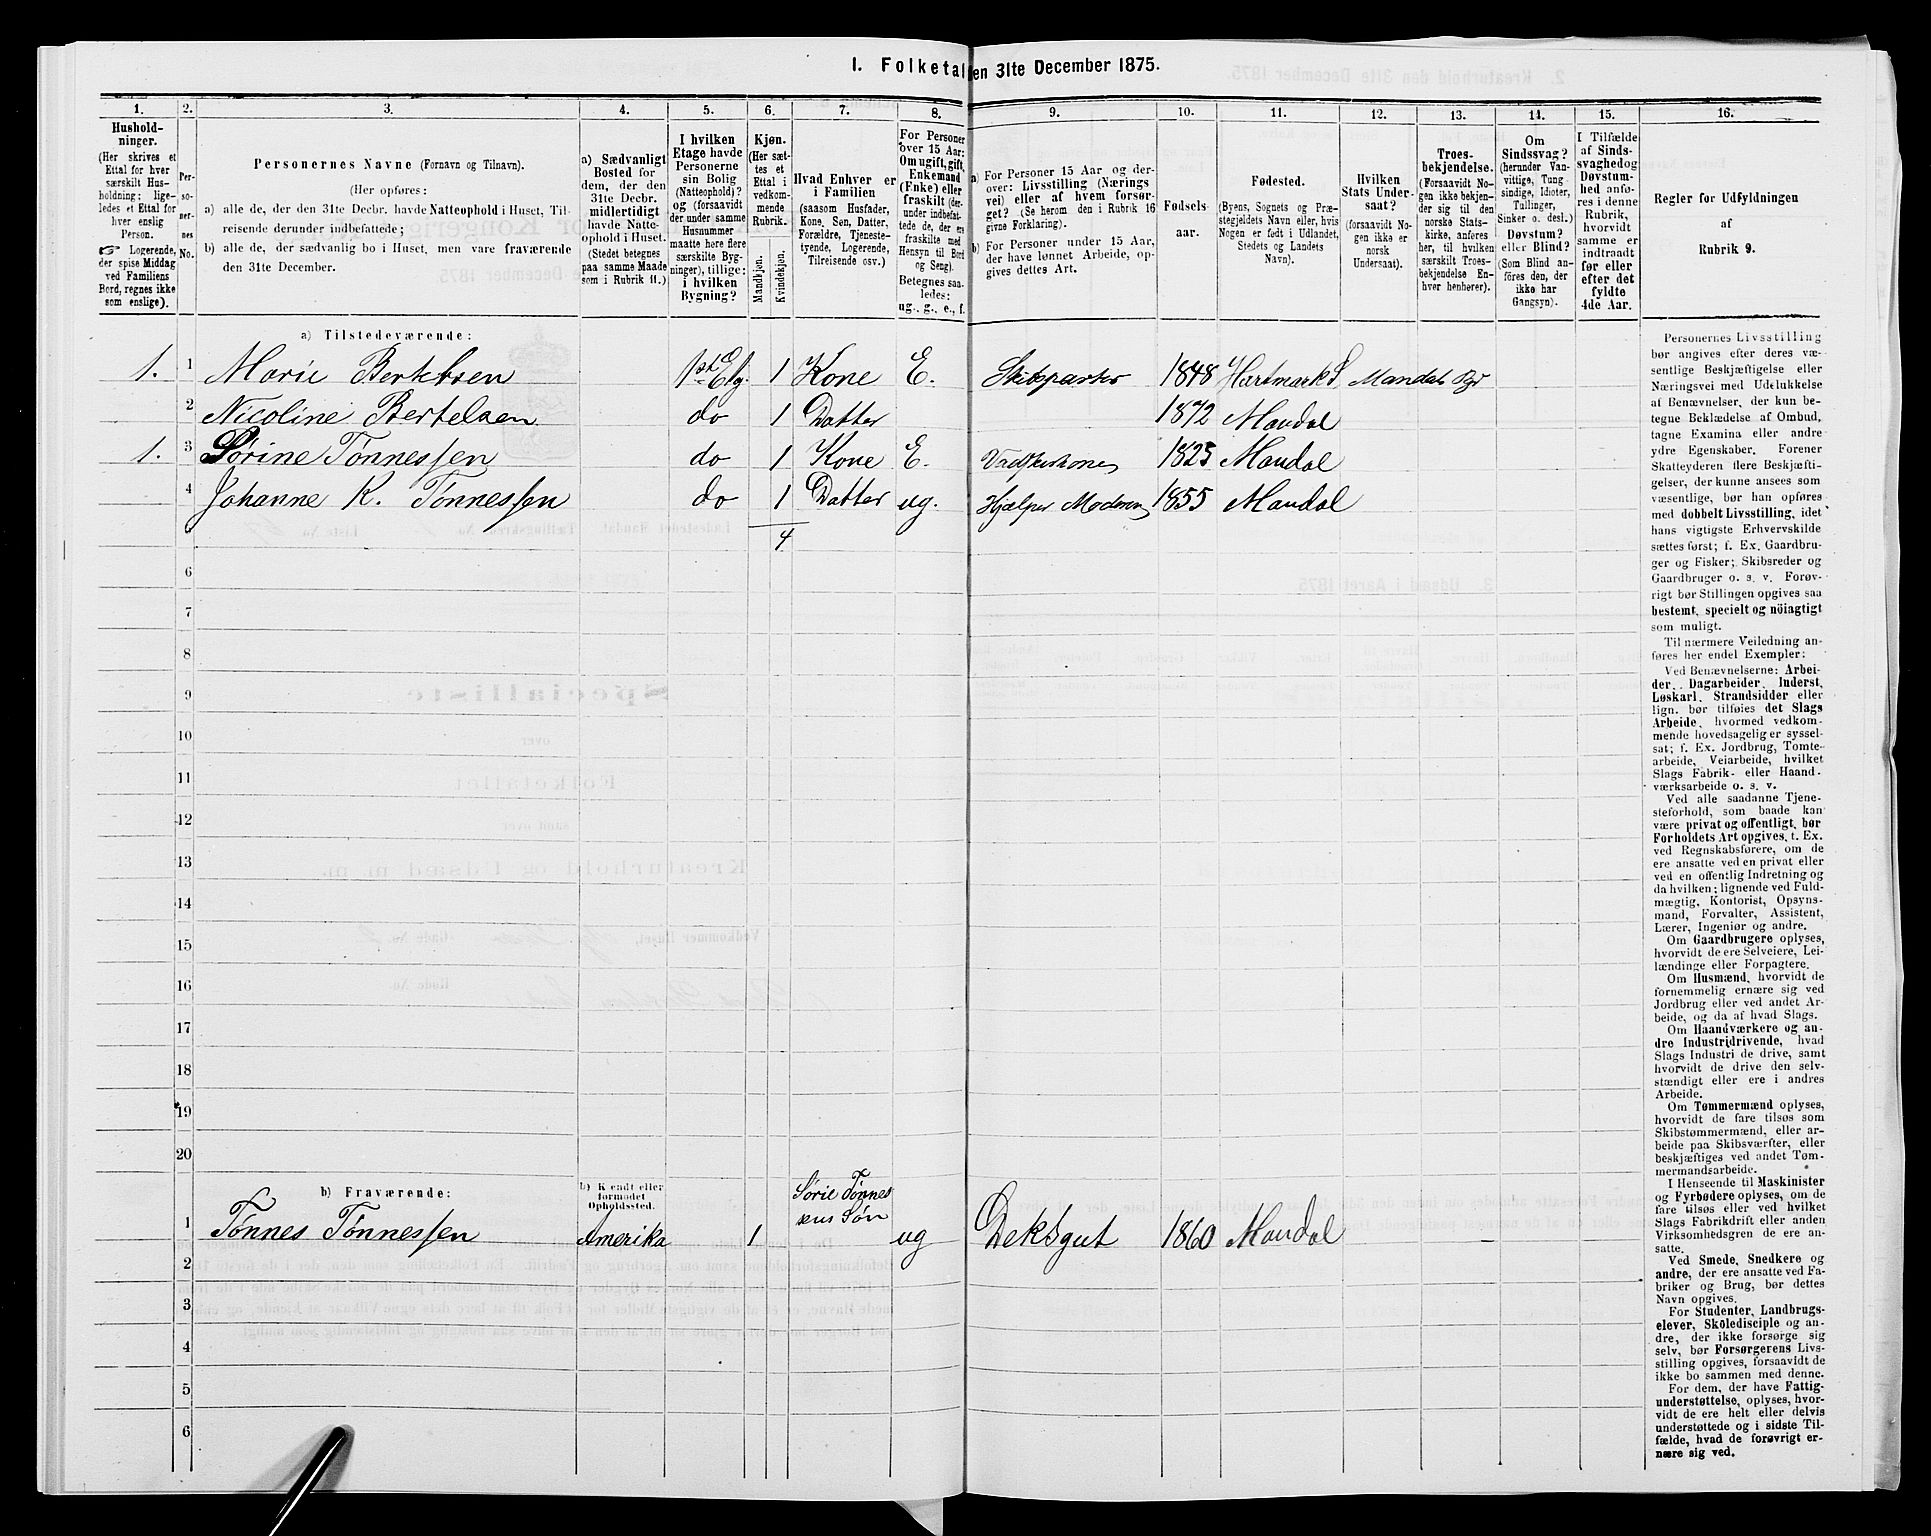 1. Folketal den 31te December 1875.
1.
Hushold-
ninger.
(Her skrives et
Ettal for hver
særskilt Hus-
holdning; lige-
ledes et Ettal for
hver enslig
Person.
Logerende,
der spise Middag
ved Familiens
Bord, regnes ikke
som enslige).
2.
Per-
so-
ner-
nes
No.
3.
Personernes Navne (Fornavn og Tilnavn).
(Her opføres:
a) alle de, der den 31te Decbr. havde Natteophold i Huset, Til-
reisende derunder indbefattede;
b) alle de, der sædvanlig bo i Huset, men vare fraværende
den 31te December.
4.
a) Sædvanligt
Bosted for
dem, der den
31te Decbr.
midlertidigt
havde Natte-
ophold i Huset.
(Stedet betegnes
paa samme Maade
som i Rubrik 11.)
5.
I hvilken
Etage havde
Personerne
sin Bolig
(Natteophold)?
og (forsaavidt
der under samme
Husnummer
maatte høre flere
særskilte Byg-
ninger), tillige:
i hvilken
Bygning?
6.
Kjøn.
(Her sæt-
tes et
Ettal i
vedkom-
mende
Rubrik.
Mandkjøn.
Kvindekjøn.
7.
Hvad Enhver er
i Familien
(saasom Husfader,
Kone, Søn, Datter,
Forældre, Tjeneste-
tyende, Logerende,
Tilreisende osv.)
8.
For Personer
over 15 Aar:
Om ugift, gift,
Enkemand
(Enke) eller
fraskilt (der-
under indbefat-
tede de, der ere
fraskilte med
Hensyn til Bord
og Seng).
Betegnes saa-
ledes:
ug., g., e., f.
9.
a) For Personer 15 Aar og der-
over: Livsstilling (Nærings
vei) eller af hvem forsør-
get? (Se herom den i Rubrik 16
givne Forklaring).
b) For Personer under 15 Aar,
der have lønnet Arbeide, op-
gives dettes Art.
10.
Fødsels-
aar.
11.
Fødested.
(Byens, Sognets og Præ-
stegjeldets Navn eller, hvis
Nogen er født i Udlandet,
Stedets og Landets
Navn).
12.
Hvilken
Stats Under-
saat?
(forsaavidt No-
gen ikke er
norsk
Undersaat).
13.
Troes-
bekjendelse.
(Forsaavidt No-
gen ikke bekjen-
der sig til den
norske Stats-
kirke, anføres
her, til hvilken
særskilt Troes-
bekjendelse En-
hver henhører).
14.
Om
Sindssvag?
(herunder Van-
vittige, Tung
sindige, Idioter,
Tullinger,
Sinker o. desl.)
Døvstum?
eller Blind?
(Som Blind an-
føres den, der
ikke har
Gangsyn).
15.
I Tilfælde
af Sinds-
svaghed og
Døvstum-
hed anfø-
res i denne
Rubrik,
hvorvidt
samme er
indtraadt
før eller
efter det
fyldte
4de Aar.
16.
Regler for Udfyldningen
af
Rubrik 9.
a) Tilstedeværende:
1. 1 Marie Bertelsen 1st Etg. 1 Kone E. 1848 Mandals
2 Nicoline Bertelsen do 1 Datter 1872 Mandal
1. 3 Sørine Tønnessen do 1 Kone E. 1825 Mandal
4 Johanne K. Tønnessen do 1 Datter ug. Hjælper Moderen 1855 Mandal
5 4
6
7
8
9
10
11
12
13
14
15
16
17
18
19
20
b) Fraværende:
b) Kjendt eller
formodet
Opholdssted.
1 Tønnes Tønnessen Amerika 1 Sørie Tønnes
sens Søn ug Deksgut 1860 Mandal
2
3
4
5
6
Personernes Livsstilling
bør angives efter deres væ-
sentlige Beskjæftigelse eller
Næringsvei med Udelukkelse
af Benævnelser, der kun be-
tegne Beklædelse af Ombud,
tagne Examina eller andre
ydre Egenskaber. Forener
Skatteyderen flere Beskjæfti-
gelser, der kunne ansees som
væsentlige, bør han opføres
med dobbelt Livsstilling, idet
hans vigtigste Erhvervskilde
sættes først; f. Ex. Gaardbru-
ger og Fisker; Skibsreder og
Gaardbruger o. s. v. Forøv-
rigt bør Stillingen opgives saa
bestemt, specielt og nöiagtigt
som muligt.
Til nærmere Veiledning an-
føres her endel Exempler:
Ved Benævnelserne: Arbei-
der, Dagarbeider, Inderst,
Løskarl, Strandsidder eller
lign. bør tilføies det Slags
Arbeide, hvormed vedkom-
mende hovedsagelig er syssel-
sat; f. Ex. Jordbrug, Tomte-
arbeide, Veiarbeide, hvilket
Slags Fabrik- eller Haand-
værksarbeide o. s. v.
Ved alle saadanne Tjene-
steforhold, som baade kan
være privat og offentligt, bør
Forholdets Art opgives, t. Ex.
ved Regnskabsførere, om de
ere ansatte ved en privat eller
ved en offentlig Indretning og
da hvilken; lignende ved Fuld-
mægtig, Kontorist, Opsyns-
mand, Forvalter, Assistent,
Lærer, Ingeniør og andre.
Om Gaardbrugere oplyses,
hvorvidt de ere Selveiere, Lei-
lændinge eller Forpagtere.
Om Husmænd, hvorvidt de
fornemmelig ernære sig ved
Jordbrug eller ved andet Ar-
beide, og da af hvad Slags.
Om Haandværkere og an-
dre Industridrivende, hvad
Slags Industri de drive, samt
hvorvidt de drive den selv-
stændigt eller ere i andres
Arbeide.
Om Tømmermænd oplyses,
hvorvidt de fare tilsøs som
Skibstømmermænd, eller ar-
beide paa Skibsværfter, eller
beskjæftiges ved andet Tøm-
mermandsarbeide.
I Henseende til Maskinister
og Fyrbødere oplyses, om de
fare tilsøs eller ved hvilket
Slags Fabrikdrift eller anden
Virksomhedsgren de ere an-
satte.
Ved Smede, Snedkere og
andre, der ere ansatte ved Fa-
briker og Brug, bør dettes
Navn opgives.
For Studenter, Landbrugs-
elever, Skoledisciple og an-
dre, der ikke forsørge sig
selv, bør Forsørgerens Livs-
stilling opgives, forsaavidt de
ikke bo sammen med denne.
For dem, der have Fattig-
understøttelse, oplyses, hvor-
vidt de ere helt eller delvis
understøttede og i sidste Til-
fælde, hvad de forøvrigt er-
nære sig ved.